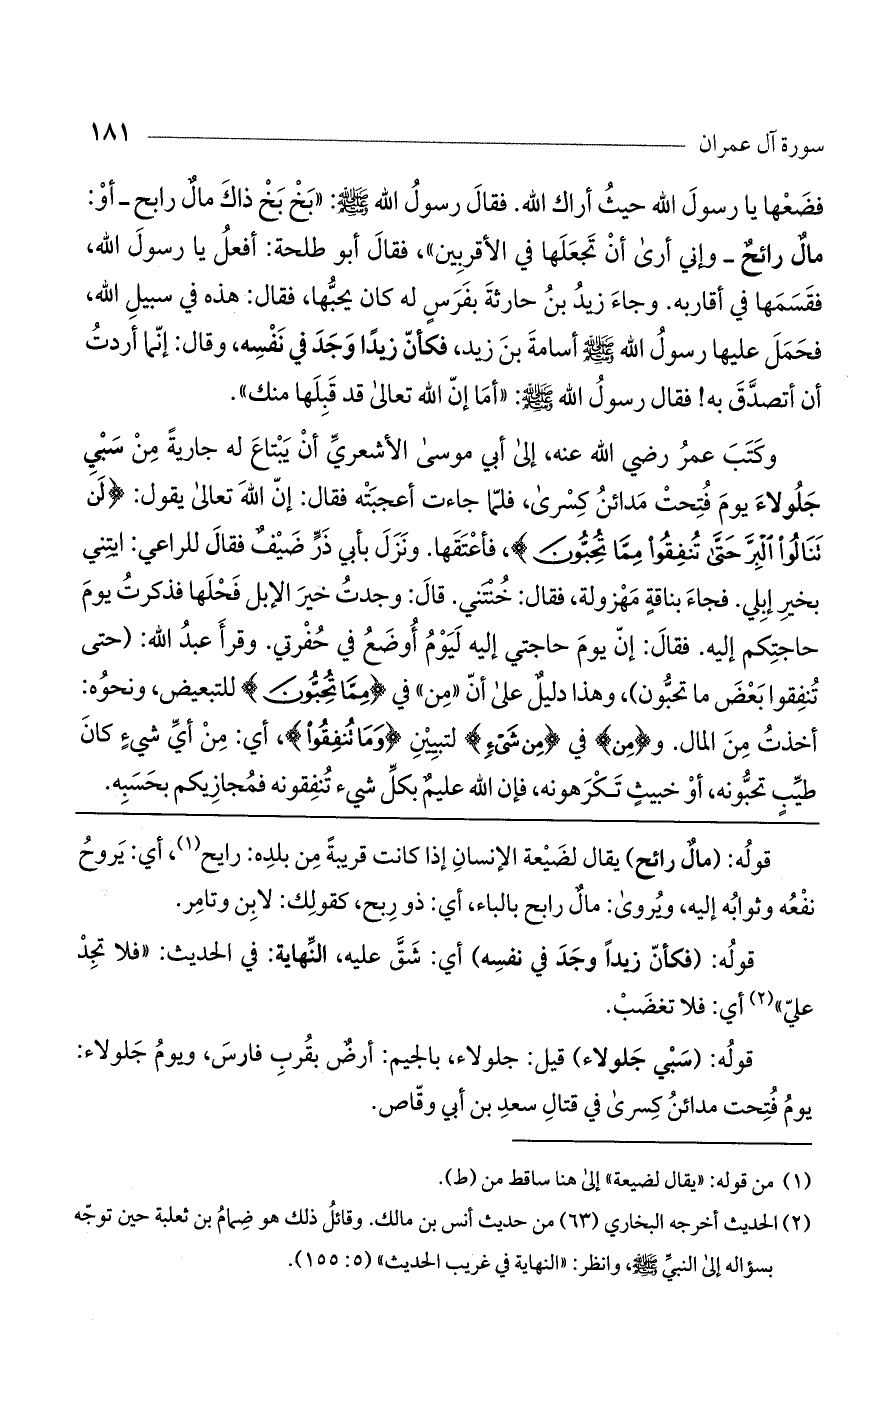 سورة آل عمران ١٨١
فضَعْها يا رسولَ الله حيثُ أراك الله. فقالَ رسولُ الله ﷺ: «بَخْ بَخْ ذاكَ مالٌ رابح ـ أوْ:
مالٌ رائحٌ ـ وإني أرىٰ أنْ تَجعَلَها في الأقربِين»، فقالَ أبو طلحة: أفعلُ يا رسولَ الله،
فقَسَمَها في أقاربه. وجاءَ زيدُ بنُ حارثةَ بفَرَسٍ له كان يحبُّها، فقال: هذه في سبيلِ الله،
فحَمَلَ عليها رسولُ الله ﷺ أسامةَ بنَ زيد، فكأنّ زيدًا وَجَدَ في نَفْسِه، وقال: إنّما أردتُ
أن أتصدَّقَ به! فقال رسولُ الله ﷺ: «أمَا إنّ الله تعالىٰ قد قَبِلَها منك».
وكَتَبَ عمرُ رضي الله عنه، إلىٰ أبي موسىٰ الأشعريِّ أنْ يَبْتاعَ له جاريةً مِنْ سَبْيِ
جَلُولاءَ يومَ فُتِحتْ مَدائنُ كِسْرىٰ، فلمّا جاءت أعجبَتْه فقال: إنّ اللهَ تعالىٰ يقول: ﴿لَن
نَنَالُوا۟ ٱلْبِرَّ حَتَّىٰ تُنفِقُوا۟ مِمَّا تُحِبُّونَ﴾، فأعْتَقَها. ونَزَلَ بأبي ذَرٍّ ضَيْفٌ فقالَ للراعي: ايتِني
بخيرِ إبِلي. فجاءَ بناقةٍ مَهْزولة، فقال: خُنْتَني. قالَ: وجدتُ خيرَ الإبل فَحْلَها فذكرتُ يومَ
حاجتِكم إليه. فقالَ: إنّ يومَ حاجتي إليه لَيَوْمُ أُوضَعُ في حُفْرتي. وقرأَ عبدُ الله: (حتى
تُنفِقوا بَعْضَ ما تحبُّون)، وهذا دليلٌ علىٰ أنّ «مِن» في ﴿مِمَّا تُحِبُّونَ﴾ للتبعيض، ونحوُه:
أخذتُ مِنَ المال. و﴿مِن﴾ في ﴿مِن شَىْءٍ﴾ لتبيِيْنِ ﴿وَمَا تُنفِقُوا۟﴾، أي: مِنْ أيِّ شيءٍ كانَ
طيِّبٍ تحبُّونه، أوْ خبيثٍ تَكْرَهونه، فإن الله عليمٌ بكلِّ شيء تُنفِقونه فمُجازيكم بحَسَبِه.
قولُه: (مالٌ رائح) يقال لضَيْعة الإنسانِ إذا كانت قريبةً مِن بلدِه: رايح(١)، أي: يَروحُ
نفْعُه وثوابُه إليه، ويُروىٰ: مالٌ رابح بالباء، أي: ذو رِبح، كقولِك: لابِن وتامِر.
قولُه: (فكأنّ زيداً وجَدَ في نفسِه) أي: شَقَّ عليه، النِّهاية: في الحديث: «فلا تجِدْ
عليّ»(٢) أي: فلا تغضَبْ.
قولُه: (سَبْي جَلولاء) قيل: جلولاء، بالجيم: أرضٌ بقُربِ فارسَ، ويومُ جَلولاء:
يومُ فُتِحت مدائنُ كِسرىٰ في قتالِ سعدِ بن أبي وقّاص.
(١) من قوله: «يقال لضيعة» إلىٰ هنا ساقط من (ط).
(٢) الحديث أخرجه البخاري (٦٣) من حديث أنس بن مالك. وقائلُ ذلك هو ضِمامُ بن ثعلبة حين توجّه
بسؤاله إلىٰ النبيِّ ﷺ، وانظر: «النهاية في غريب الحديث» (٥: ١٥٥).